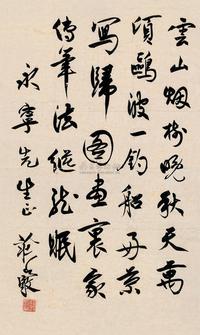 雲山烟樹晚秋天萬
頃鷗波一釣船好景
寫歸圖畫裏家
傳筆法縱龍眠
永寧先生正 范